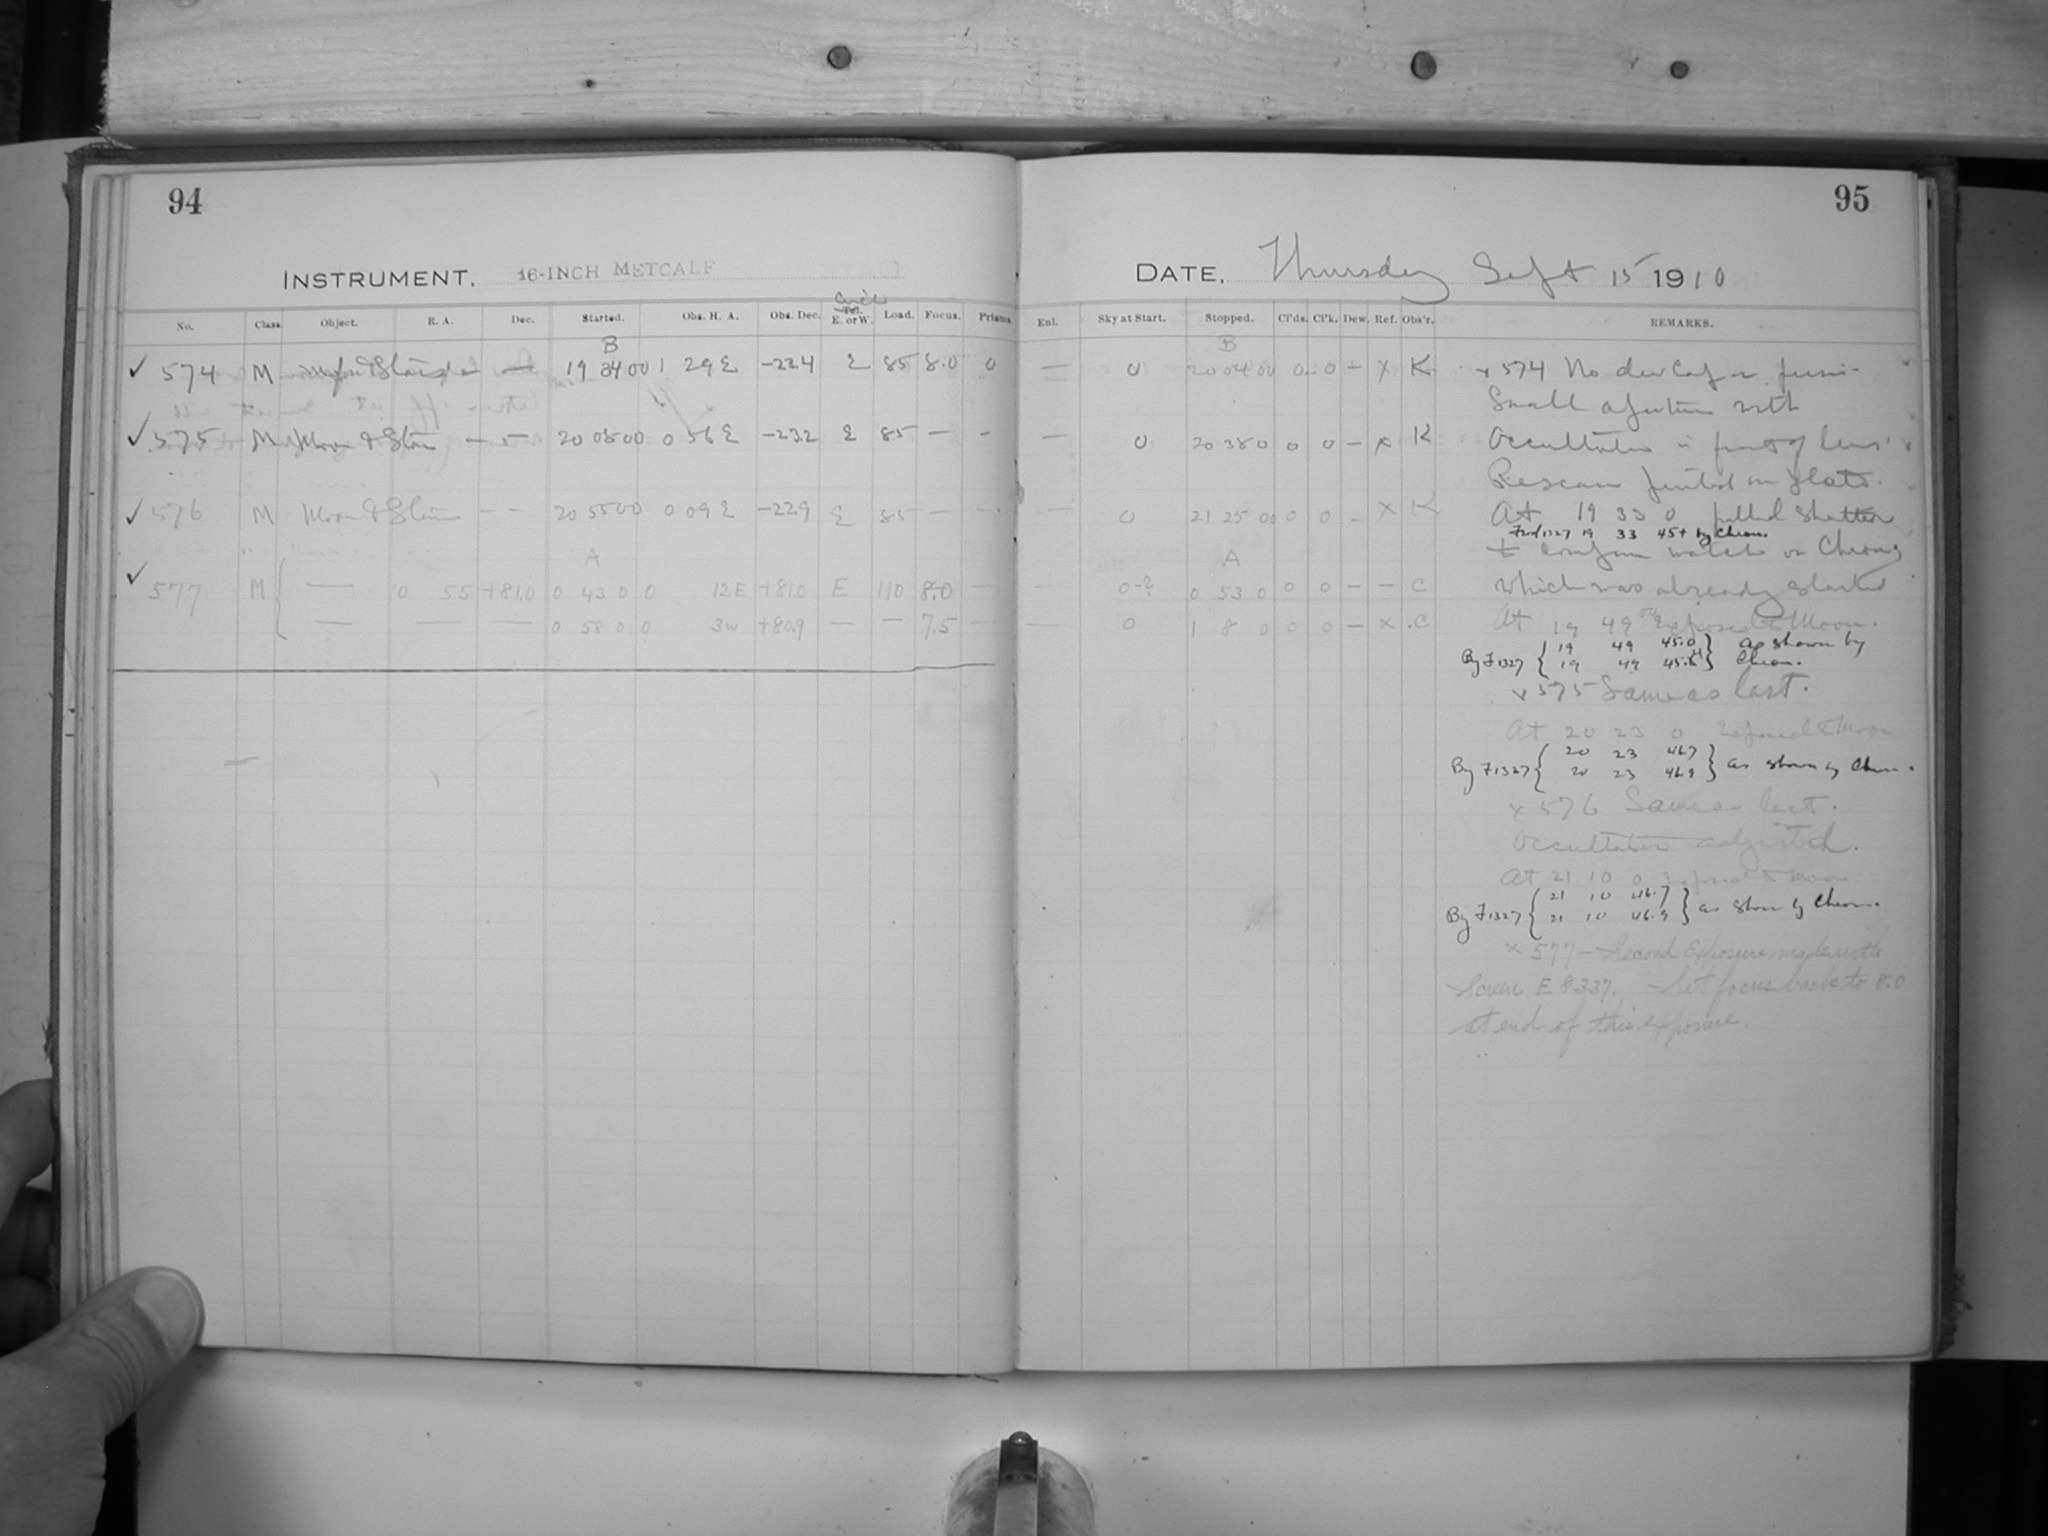 94
INSTRUMENT. 16-INCH METCALF
No. Class. Object. R. A. Dec. Started. Obs. H. A. Obs. Dec. Circle Tel. E. or W. Load. Focus. Prisms
B
✓ 574 M Moon & Stars — — 19 34 00 1 29 E -22.4 E 85 8.0 0
✓ 575 M Moon & Stars — — 20 08 00 0 56 E -23.2 E 85 — -
✓ 576 M Moon & Stars — — 20 55 00 0 09 E -22.9 E 85 — -
A
✓ 577 M — 0 55 +81.0 0 43 0 0 12 E +81.0 E 110 8.0 —
— — — 0 58 0 0 3 w +80.9 — — 7.5 —
95
DATE. Thursday Sept 15 1910
Enl. Sky at Start. Stopped. Cl'ds. Cl'k. Dew. Ref. Obs'r. REMARKS.
B
— 0 20 04 00 0 0 — x K x 574 No dew cap
Small aperture with
— 0 20 38 0 0 0 — x K Occultator in front of lens
Reseau printed on plate.
— 0 21 25 00 0 0 - x K At 19 33 0 pulled shutter
F1327 19 33 45+ by Chron.
to compare watch on Chron
A
0-? 0 53 0 0 0 — — C which was already started
— 0 1 8 0 0 0 — x C At 19 49 00 exposed to Moon.
By F1327 { 19 49 45.0 } as shown by
19 49 45.8 } Chron.
x 575 Same as last.
At 20 23 0 Exposed to Moon
By F1327 { 20 23 46.7 } as shown by Chron.
20 23 46.9
x 576 Same as last.
Occultator adjusted.
At 21 10 0 exposed to Moon
By F1327 { 21 10 46.7 } as shown by Chron.
21 10 46.9
x 577 — Second Exposure made with
Screen E 8337. Set focus back to 8.0
at end of this exposure.